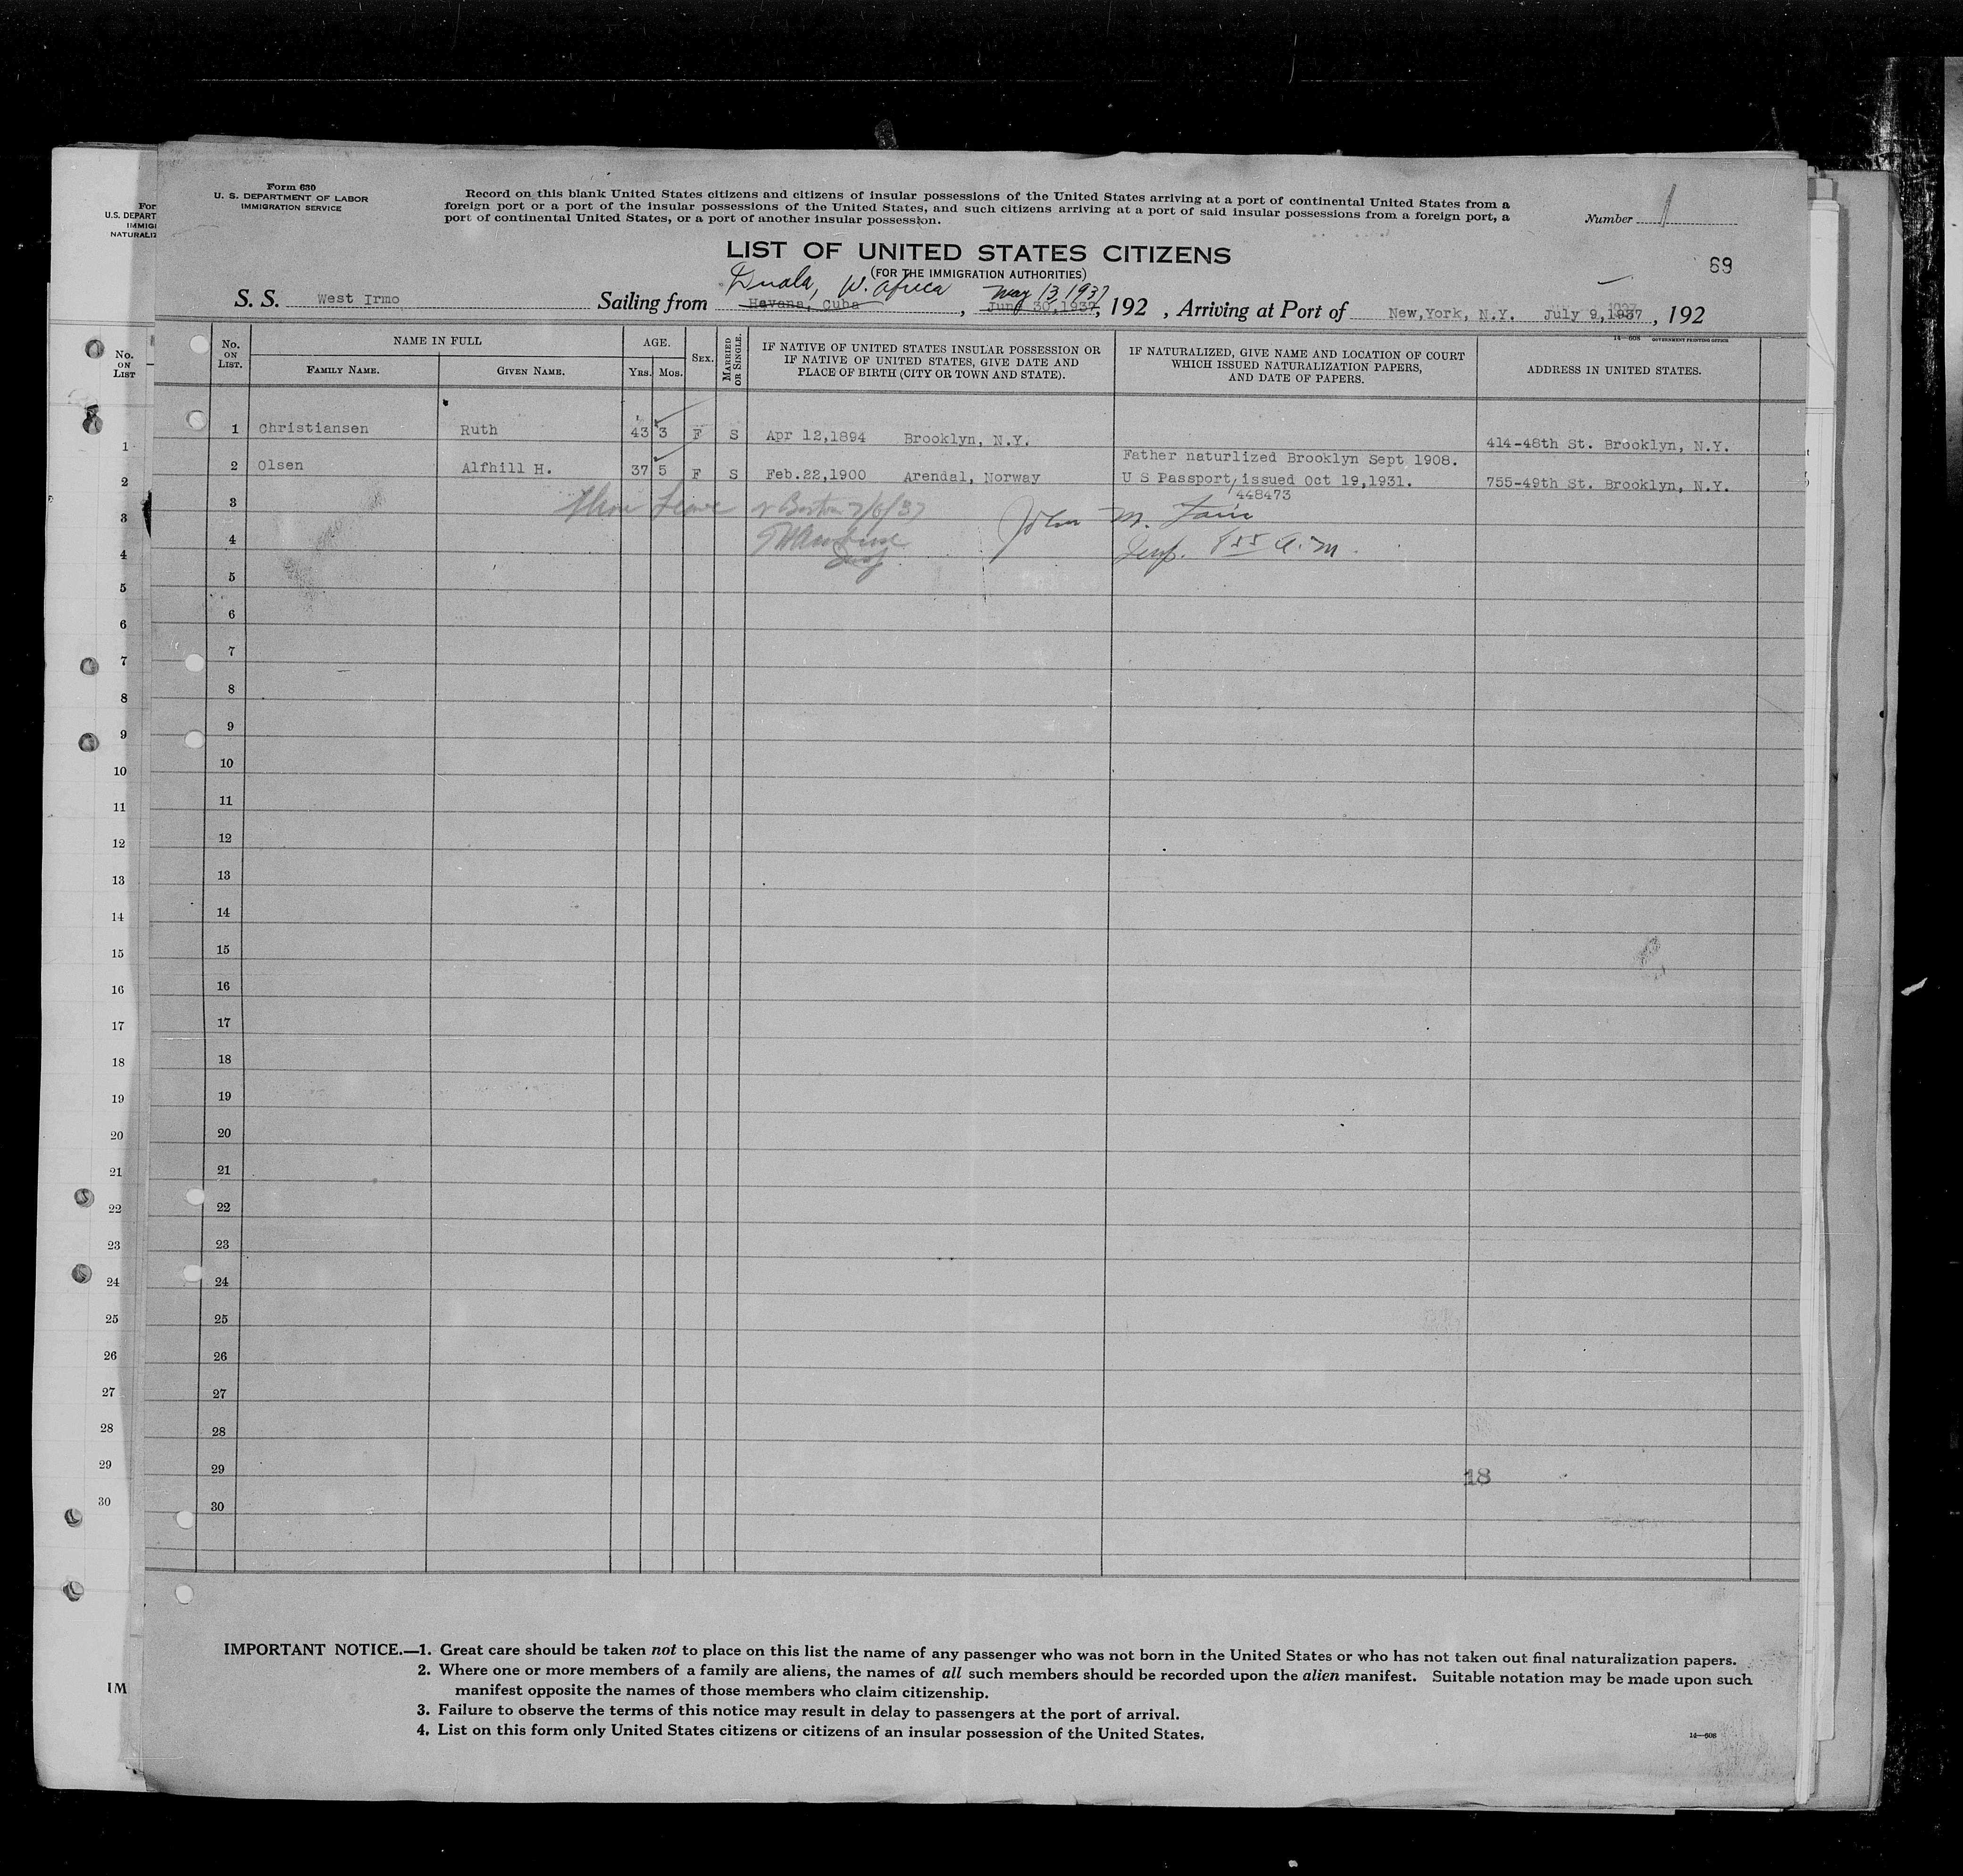 Form 630
U. S. DEPARTMENT OF LABOR
IMMIGRATION SERVICE
Record on this blank United States citizens and citizens of insular possessions of the United States arriving at a port of continental United States from a
foreign port or a port of the insular possessions of the United States, and such citizens arriving at a port of said insular possessions from a foreign port, a
port of continental United States, or a port of another insular possession.
Number 1
LIST OF UNITED STATES CITIZENS
(FOR THE IMMIGRATION AUTHORITIES)
69
Duala, W. Africa May 13, 1937
S. S. West Irmo Sailing from Havana, Cuba , June 30,1937, 192 , Arriving at Port of New,York, N.Y. July 9,1937 , 192
14—608 GOVERNMENT PRINTING OFFICE
No. ON LIST. NAME IN FULL AGE. SEX. MARRIED OR SINGLE. IF NATIVE OF UNITED STATES INSULAR POSSESSION OR IF NATIVE OF UNITED STATES, GIVE DATE AND PLACE OF BIRTH (CITY OR TOWN AND STATE). IF NATURALIZED, GIVE NAME AND LOCATION OF COURT WHICH ISSUED NATURALIZATION PAPERS, AND DATE OF PAPERS. ADDRESS IN UNITED STATES.
FAMILY NAME. GIVEN NAME. YRS. MOS.
1 Christiansen Ruth 43 3 F S Apr 12,1894 Brooklyn, N.Y. 414-48th St. Brooklyn, N.Y.
Father naturlized Brooklyn Sept 1908.
2 Olsen Alfhill H. 37 5 F S Feb.22,1900 Arendal, Norway U S Passport, issued Oct 19,1931. 755-49th St. Brooklyn, N.Y.
448473
3 Shore Leave Boston 7/6/37 John M.
4 Insp. 8 55 A.M.
5
6
7
8
9
10
11
12
13
14
15
16
17
18
19
20
21
22
23
24
25
26
27
28
29
18
30
IMPORTANT NOTICE.—1. Great care should be taken not to place on this list the name of any passenger who was not born in the United States or who has not taken out final naturalization papers.
2. Where one or more members of a family are aliens, the names of all such members should be recorded upon the alien manifest. Suitable notation may be made upon such
manifest opposite the names of those members who claim citizenship.
3. Failure to observe the terms of this notice may result in delay to passengers at the port of arrival.
4. List on this form only United States citizens or citizens of an insular possession of the United States.
14—608
For
U.S. DEPART
IMMIG
NATURALIZ
No.
ON
LIST
1
2
3
4
5
6
7
8
9
10
11
12
13
14
15
16
17
18
19
20
21
22
23
24
25
26
27
28
29
30
IM